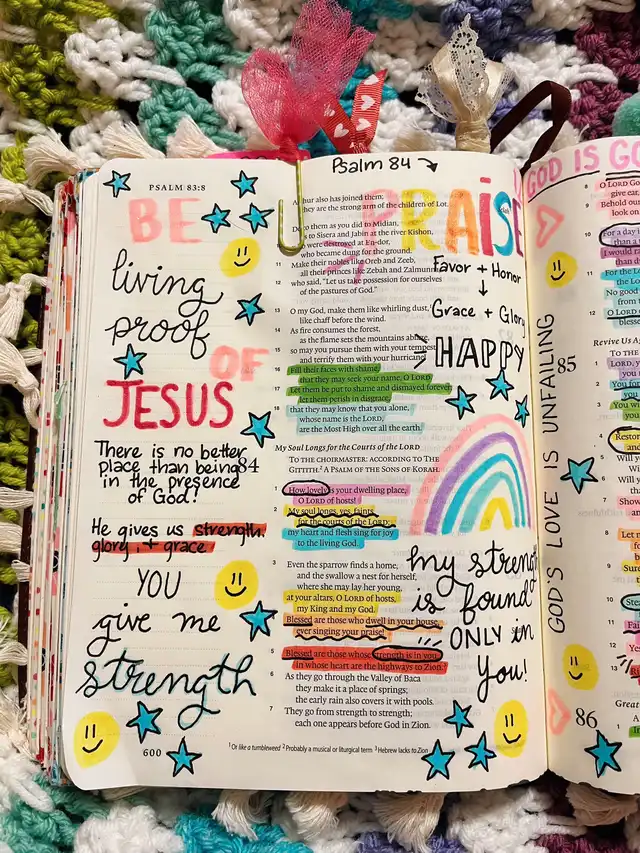 PSALM 83:8
BE
living
proof
OF
JESUS
There is no better
place than being
in the presence
of God!
He gives us strength,
glory, + grace
YOU
give me
strength
600
Psalm 84
PRAISE
Favor + Honor
Grace + Glory
HAPPY
my strength
is found
ONLY in
You!
also has joined them;
they are the strong arm of the children of Lot.
to them as you did to Midian,
to Sisera and Jabin at the river Kishon,
were destroyed at En-dor,
who became dung for the ground.
11 Make their nobles like Oreb and Zeeb,
all their princes like Zebah and Zalmunna,
12 who said, "Let us take possession for ourselves
of the pastures of God."
13 O my God, make them like whirling dust,1
like chaff before the wind.
14 As fire consumes the forest,
as the flame sets the mountains ablaze,
15 so may you pursue them with your tempest
and terrify them with your hurricane!
16 Fill their faces with shame,
that they may seek your name, O LORD.
17 Let them be put to shame and dismayed forever;
let them perish in disgrace,
18 that they may know that you alone,
whose name is the LORD,
are the Most High over all the earth.
My Soul Longs for the Courts of the LORD
84 TO THE CHOIRMASTER: ACCORDING TO THE
GITTITH.2 A PSALM OF THE SONS OF KORAH.
1 How lovely is your dwelling place,
O LORD of hosts!
2 My soul longs, yes, faints
for the courts of the LORD;
my heart and flesh sing for joy
to the living God.
3 Even the sparrow finds a home,
and the swallow a nest for herself,
where she may lay her young,
at your altars, O LORD of hosts,
my King and my God.
4 Blessed are those who dwell in your house,
ever singing your praise!
5 Blessed are those whose strength is in you,
in whose heart are the highways to Zion.
6 As they go through the Valley of Baca
they make it a place of springs;
the early rain also covers it with pools.
7 They go from strength to strength;
each one appears before God in Zion.
1 Or like a tumbleweed 2 Probably a musical or liturgical term 3 Hebrew lacks to Zion
GOD IS
GOD'S LOVE IS UNFAILING
8 O LORD
give ear,
9 Behold our
look on
10 For a day
11 For the
the
No good
from
12 O LORD
85
Revive Us
TO THE
1 LORD,
you
2 You
you
3 You
you
4 Restore
5 Will
Will
6 Will
7 Show
and
8 Let
9
10
11
12 Yes
13
86
Great